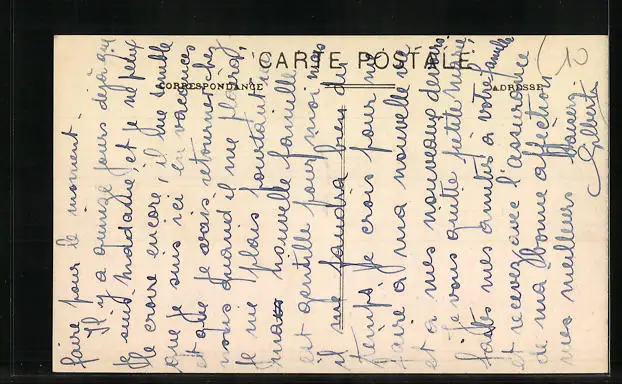 CARTE POSTALE
CORRESPONDANCE
ADRESSE
10
faire pour le moment.
Il y a quinze jours déjà que
je suis madame, et je ne peux
le croire encore, il me semble
que je suis ici en vacances
et que je vais retourner chez
nous quand il me plaira,
je me plais pourtant
nouvelle famille
est gentille pour moi mais
il me faudra peu de
temps je crois pour me
faire à ma nouvelle vie
et à mes nouveaux devoirs
Je vous quitte petite Marie,
faites mes amitiés à votre famille
et recevez avec l'assurance
de ma bonne affection
mes meilleurs baisers
Gilberte